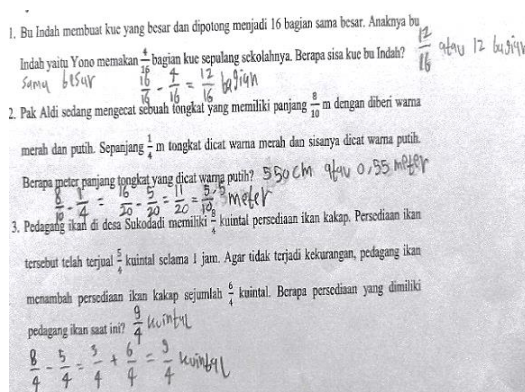 1. Bu Indah membuat kue yang besar dan dipotong menjadi 16 bagian sama besar. Anaknya bu
Indah yaitu Yono memakan 4/16 bagian kue sepulang sekolahnya. Berapa sisa kue bu Indah? 12/16 atau 12 bagian
sama besar 16/16 - 4/16 = 12/16 bagian
2. Pak Aldi sedang mengecat sebuah tongkat yang memiliki panjang 8/10 m dengan diberi warna
merah dan putih. Sepanjang 1/4 m tongkat dicat warna merah dan sisanya dicat warna putih.
Berapa meter panjang tongkat yang dicat warna putih? 550 cm atau 0,55 meter
8/10 - 1/4 = 16/20 - 5/20 = 11/20 = 5,5/10 meter
3. Pedagang ikan di desa Sukodadi memiliki 8/4 kuintal persediaan ikan kakap. Persediaan ikan
tersebut telah terjual 5/4 kuintal selama 1 jam. Agar tidak terjadi kekurangan, pedagang ikan
menambah persediaan ikan kakap sejumlah 6/4 kuintal. Berapa persediaan yang dimiliki
pedagang ikan saat ini? 9/4 kuintal
8/4 - 5/4 = 3/4 + 6/4 = 9/4 kuintal